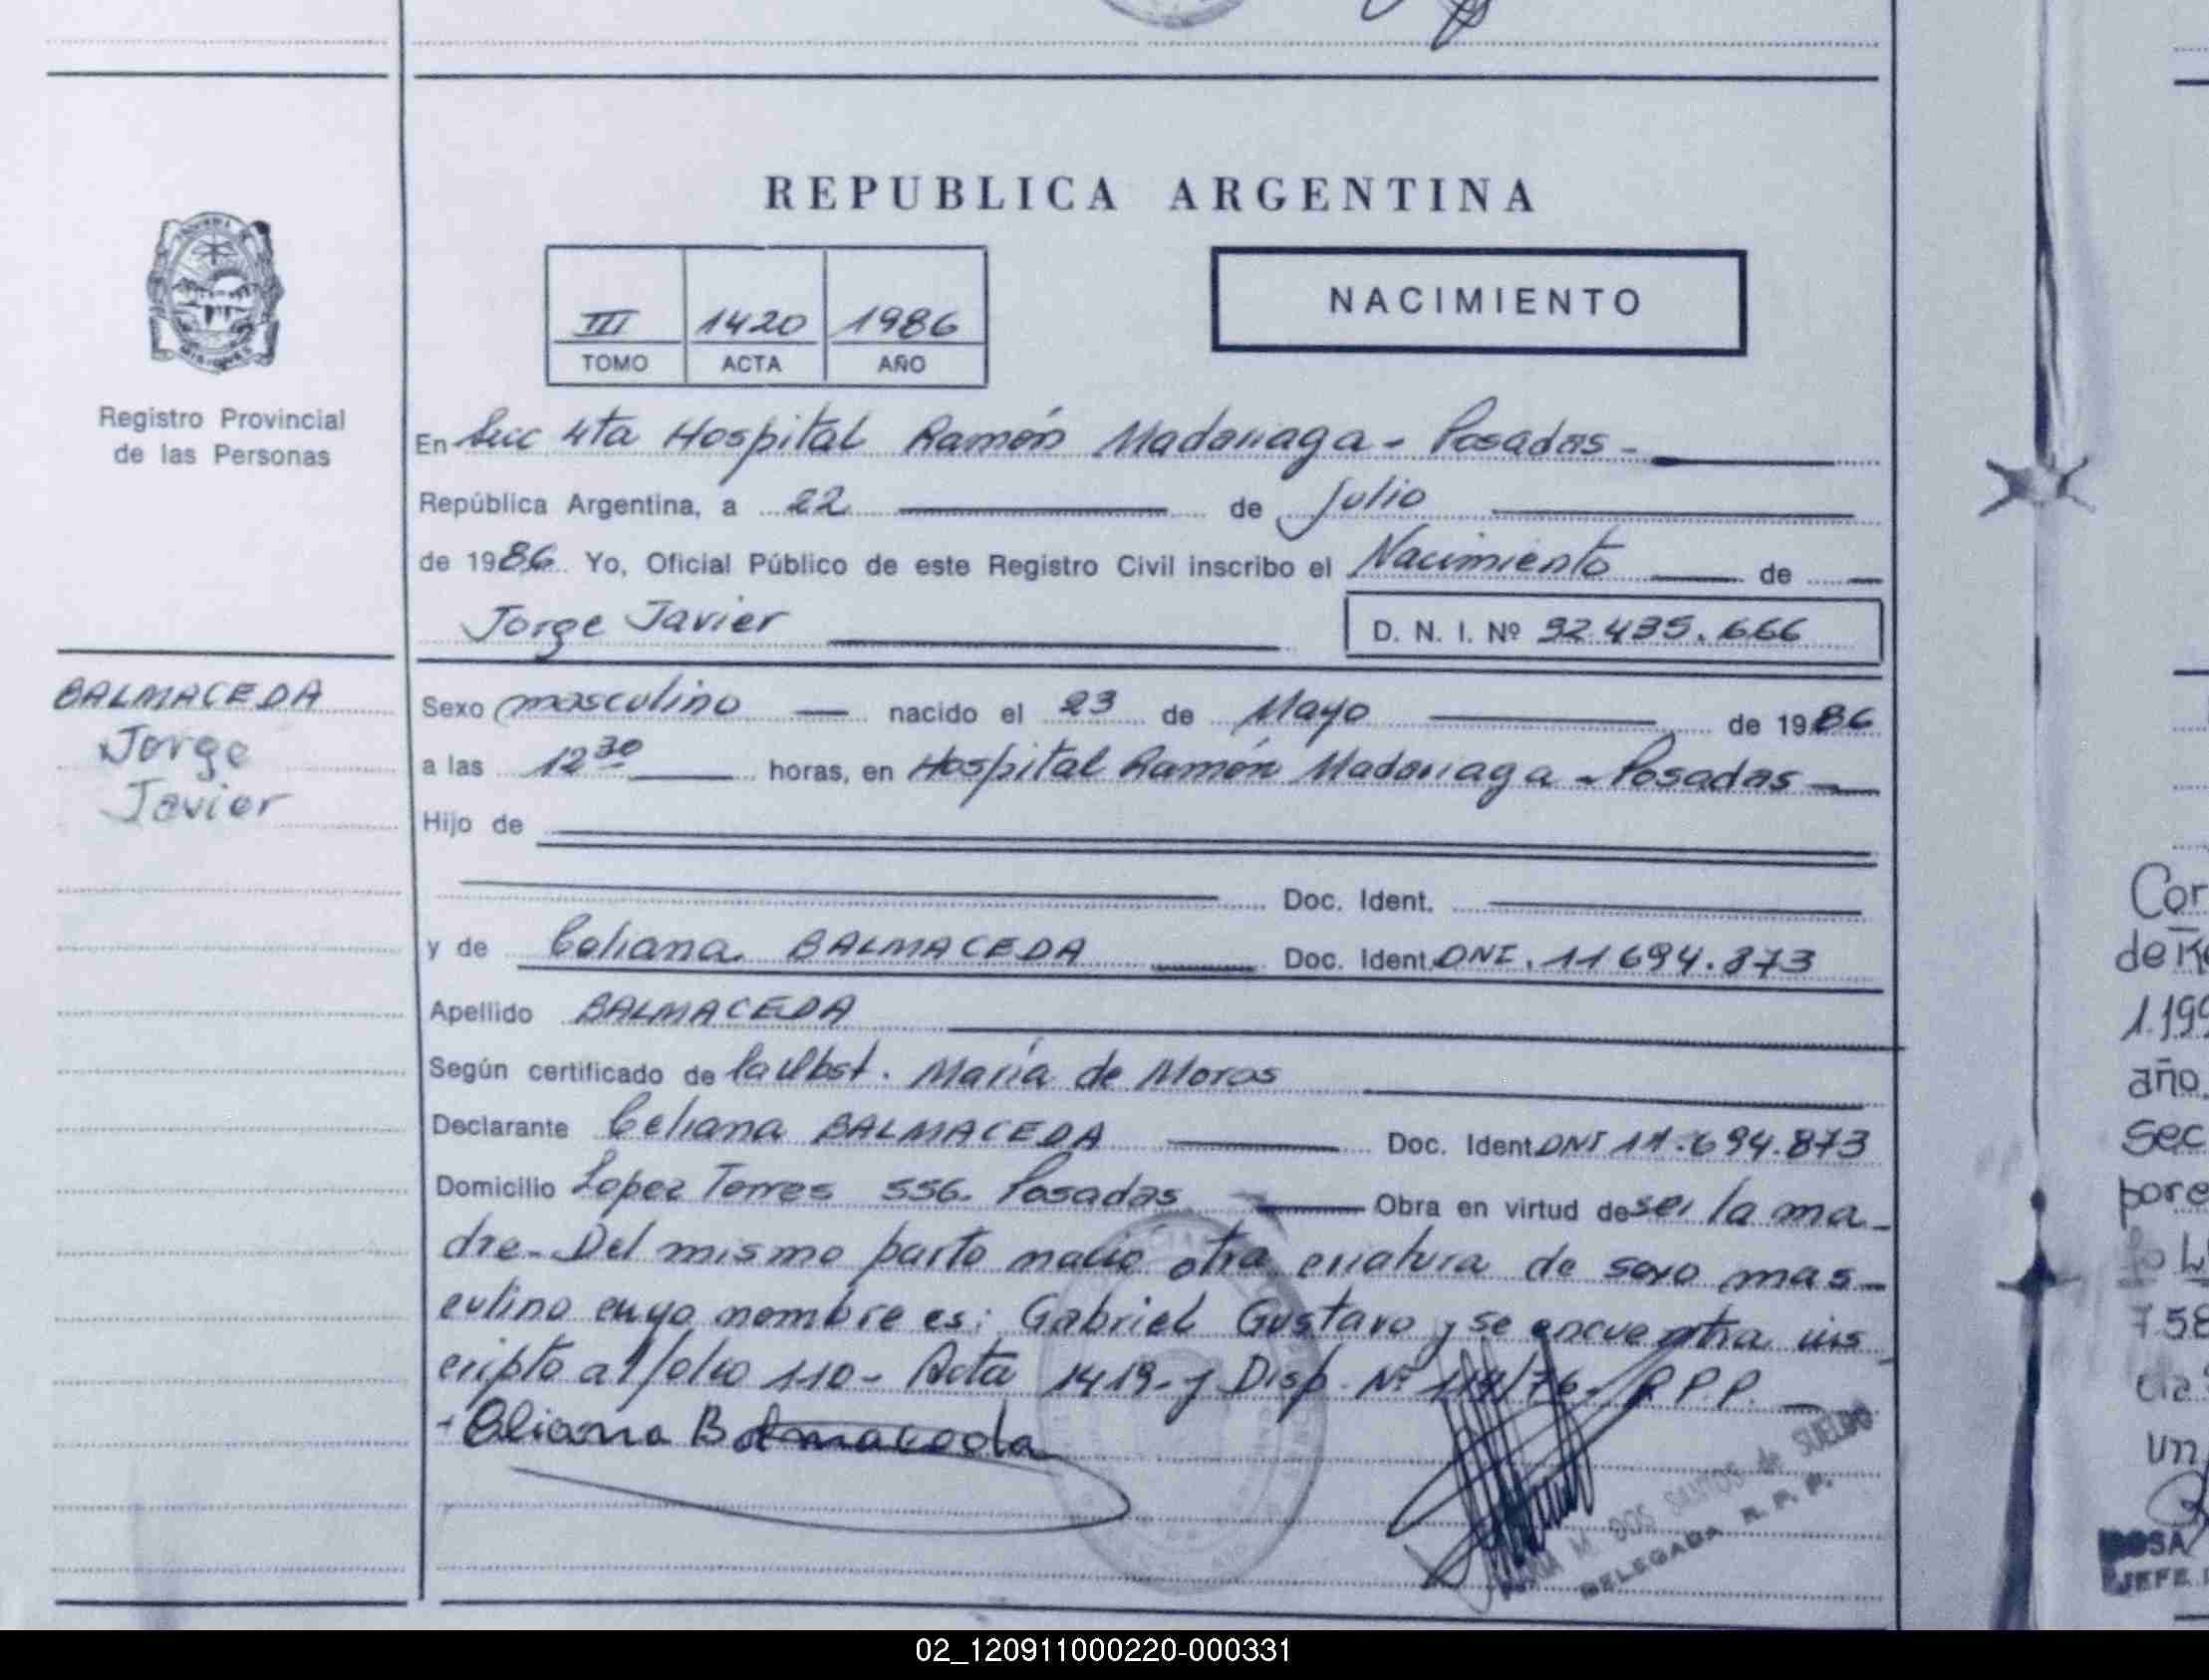 REPUBLICA ARGENTINA
NACIMIENTO
III 1420 1986
TOMO ACTA AÑO
Registro Provincial
de las Personas
En Secc 4ta Hospital Ramón Madariaga - Posadas -
República Argentina, a 22 de Julio
de 1986 Yo, Oficial Público de este Registro Civil inscribo el Nacimiento de
Jorge Javier D. N. I. Nº 92.435.666
BALMACEDA
Jorge
Javier
Sexo masculino nacido el 23 de Mayo de 1986
a las 12 30 horas, en Hospital Ramón Madariaga - Posadas
Hijo de
Doc. Ident.
y de Celiana BALMACEDA Doc. Ident. DNI. 11694.873
Apellido BALMACEDA
Según certificado de la Obst. María de Moras
Declarante Celiana BALMACEDA Doc. Ident. DNI 11.694.873
Domicilio Lopez Torres 556. Posadas Obra en virtud de ser la ma-
dre- Del mismo parto nacio otra criatura de sexo mas-
culino cuyo nombre es: Gabriel Gustavo y se encuentra ins
cripto al folio 110- Acta 1419- y Disp. Nº 114/76- R.P.P.
Celiana Balmaceda
M. DOS SANTOS de SUELDO
DELEGADA R. P. P.
Cor
1.199
año.
sec
pore
758
un
JEFE
02_120911000220-000331